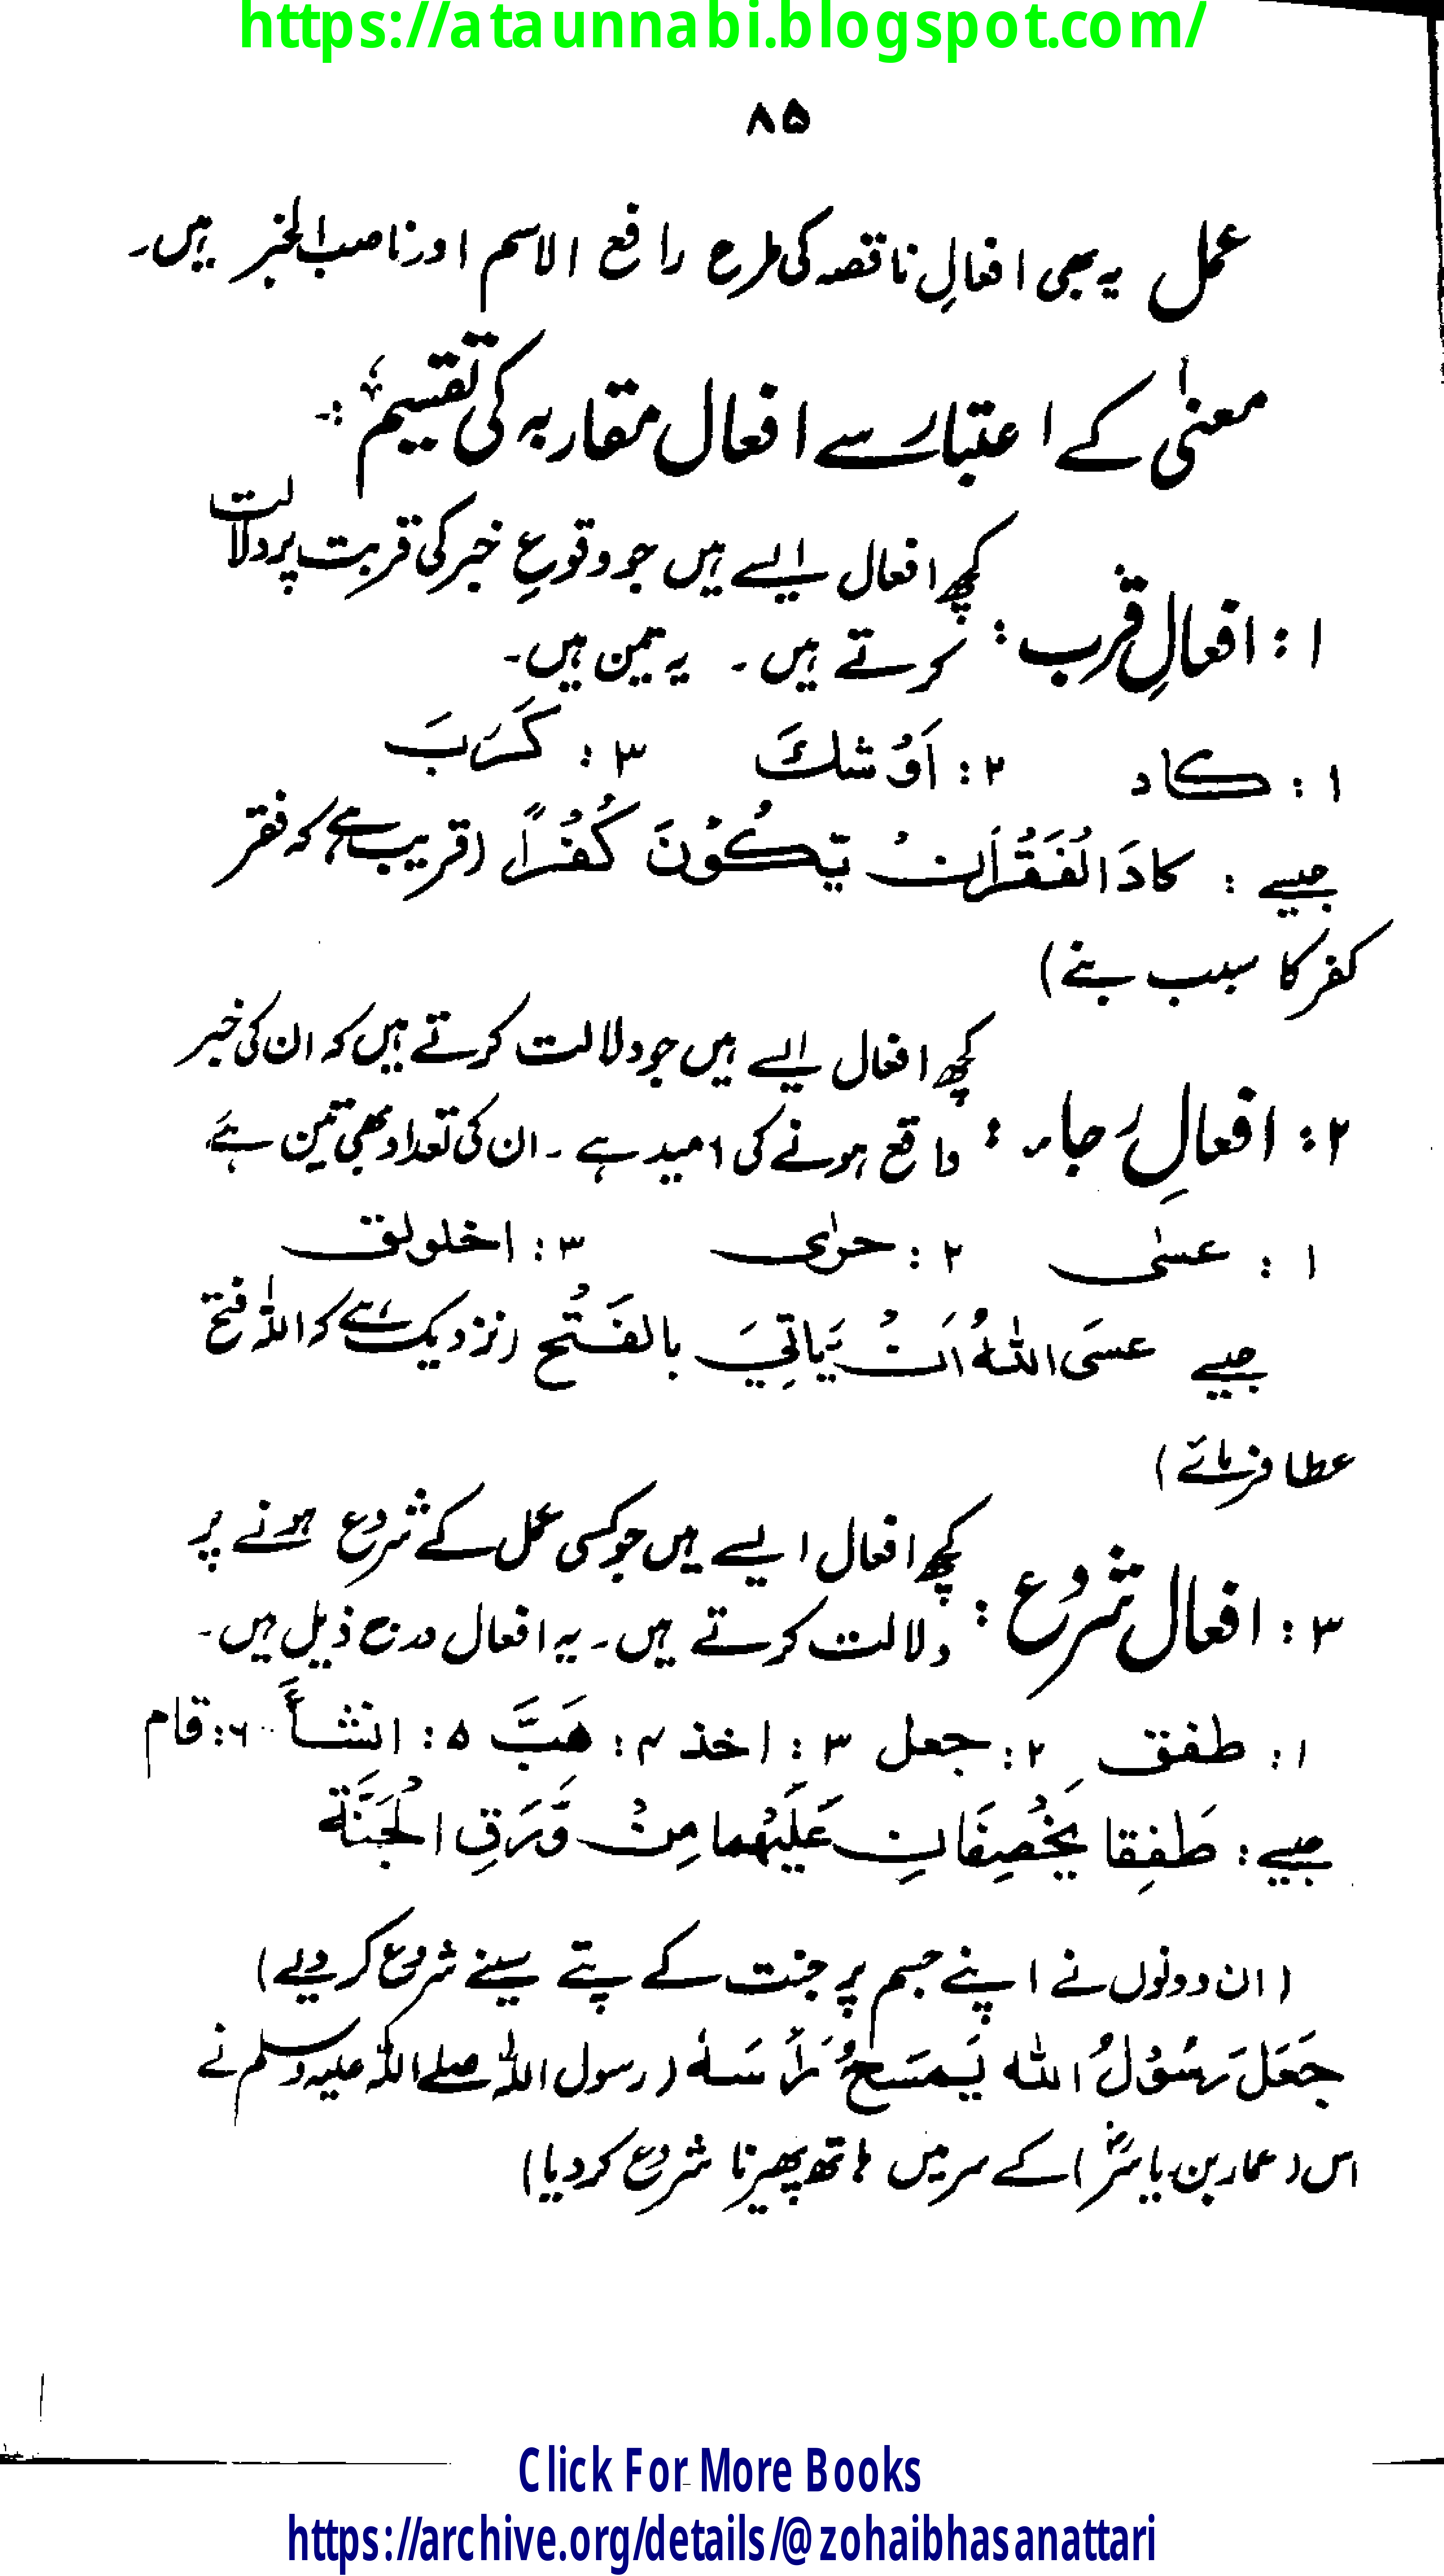 https://ataunnabi.blogspot.com/
۸۵
عمل یہ بھی افعالِ ناقصہ کی طرح رافع الاسم اور ناصب الخبر ہیں۔
معنیٰ کے اعتبار سے افعال مقاربہ کی تقسیم :۔
۱ : افعالِ قرب : کچھ افعال ایسے ہیں جو وقوعِ خبر کی قربت پر دلالت
کرتے ہیں ۔ یہ تین ہیں۔
۱ : کاد ۲ : اَوْشكَ ۳ : كَرَبَ
جیسے : كادَ الْفَقْرُ اَنْ يَّكُوْنَ كُفْرًا (قریب ہے کہ فقر
کفر کا سبب بنے)
۲ : افعالِ رجاء : کچھ افعال ایسے ہیں جو دلالت کرتے ہیں کہ ان کی خبر
واقع ہونے کی امید ہے ۔ ان کی تعداد بھی تین ہے
۱ : عسٰى ۲ : حرٰى ۳ : اخلولق
جیسے عسَى اللّٰهُ اَنْ يَّاتِيَ بالفَتْح (نزدیک ہے کہ اللہ فتح
عطا فرمائے)
۳ : افعال شروع : کچھ افعال ایسے ہیں جو کسی عمل کے شروع ہونے پر
دلالت کرتے ہیں۔ یہ افعال درج ذیل ہیں۔
۱ : طفق ۲ : جعل ۳ : اخذ ۴ : هَبَّ ۵ : انشأَ ۶ : قام
جیسے : طَفِقا يَخْصِفَانِ عَلَيْهِما مِنْ وَّرَقِ الْجَنَّة
(ان دونوں نے اپنے جسم پر جنت کے پتے سینے شروع کر دیے)
جَعَلَ رَسُوْلُ اللّٰه يَمسَحُ رَأسَهٗ (رسول اللہ صلے اللہ علیہ وسلم نے
اس (عمار بن یاسرؓ) کے سر میں ہاتھ پھیرنا شروع کر دیا)
Click For More Books
https://archive.org/details/@zohaibhasanattari